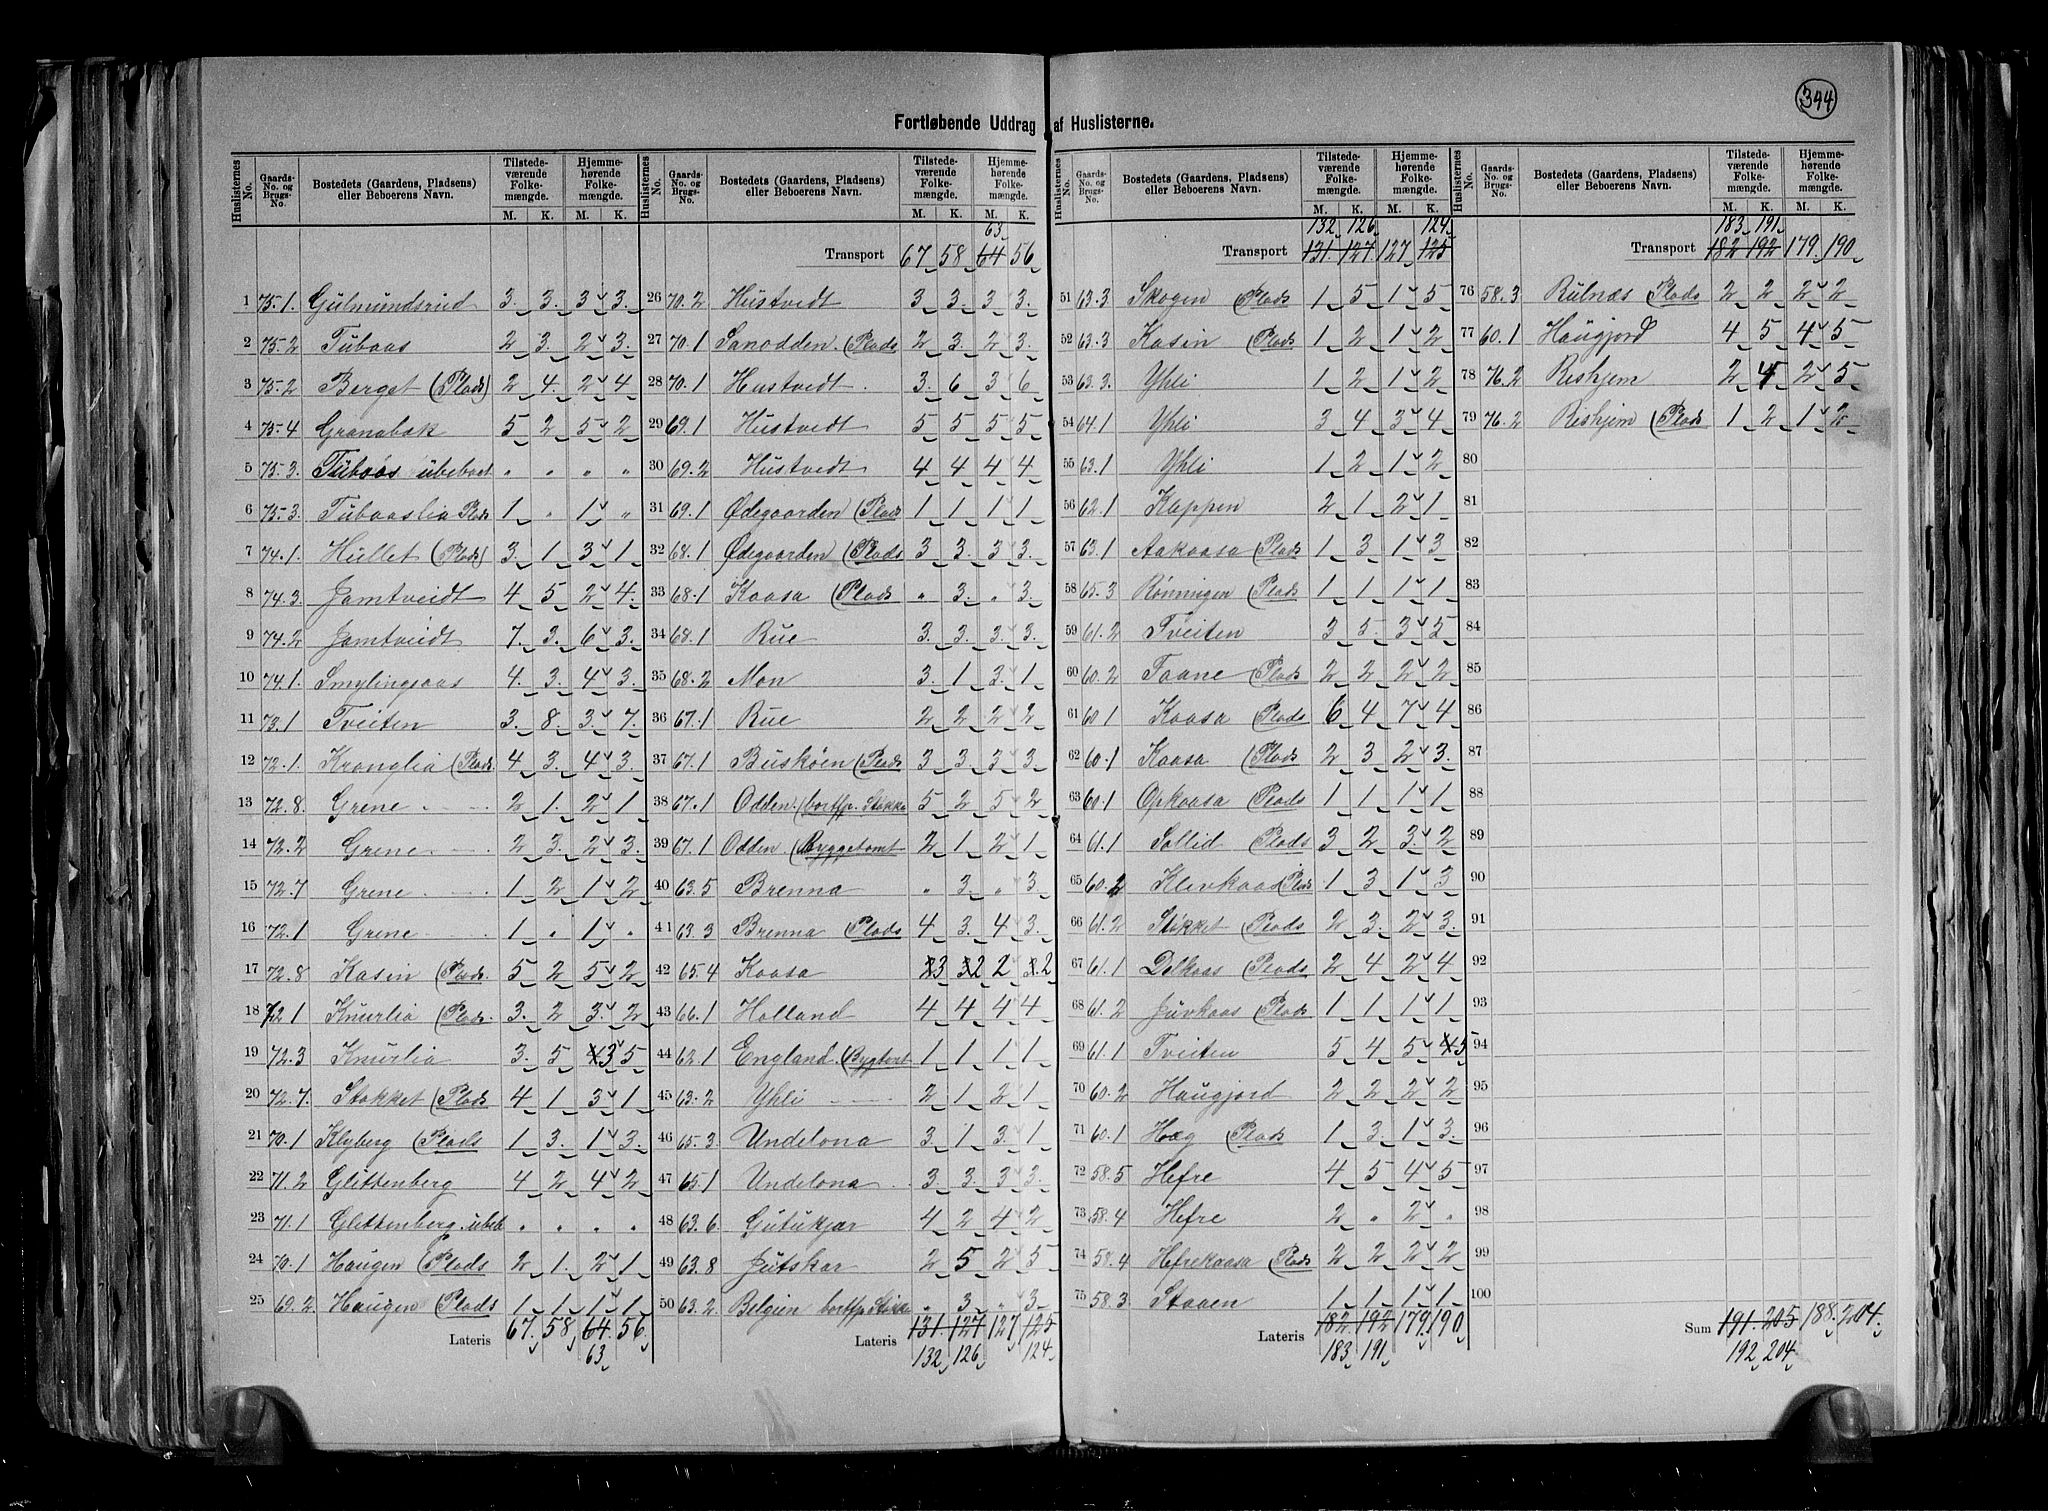 394
Fortløbende Uddrag af Huslisterne.
Huslisternes No. | Gaards-No. og Brugs-No. | Bostedets (Gaardens, Pladsens) eller Beboerens Navn. | Tilstedeværende Folkemængde. M. K. | Hjemmehørende Folkemængde. M. K.
1 75.1 Gulmundsrud 3 3 3 3
2 75.2 Tubaas 2 3 2 3
3 75.2 Berget (Plads) 2 4 2 4
4 75.4 Granabæk 5 2 5 2
5 75.3 Tubaas ubeboet " " " "
6 75.3 Tubaaslia Plads 1 " 1 "
7 74.1 Hullet (Plads) 3 1 3 1
8 74.3 Jamtveidt 4 5 2 4
9 74.2 Jamtveidt 7 3 6 3
10 74.1 Smylingsaas 4 3 4 3
11 73.1 Tveiten 3 8 3 7
12 72.1 Kronglia (Plads 4 3 4 3
13 72.8 Grene 2 1 2 1
14 72.2 Grene 2 3 2 3
15 72.7 Grene 1 2 1 2
16 72.1 Grene 1 " 1 "
17 72.8 Kasin (Plads 5 2 5 2
18 72.1 Knurlia (Plads 3 2 3 2
19 72.3 Knurlia 3 5 3 5
20 72.7 Stokket (Plads 4 1 3 1
21 70.1 Klyberg (Plads 1 3 1 3
22 71.2 Glittenberg 4 2 4 2
23 71.1 Glittenberg " " " "
24 70.1 Haugen (Plads 2 1 2 1
25 69.2 Haugen (Plads 1 1 1 1
Lateris 67 58 64 56
63
63
Transport 67 58 64 56
26 70.2 Hustvedt 3 3 3 3
27 70.1 Sanodden (Plads 2 3 2 3
28 70.1 Hustvedt 3 6 3 6
29 69.1 Hustvedt 5 5 5 5
30 69.2 Hustvedt 4 4 4 4
31 69.1 Ødegaarden (Plads 1 1 1 1
32 68.1 Ødegaarden (Plads 3 3 3 3
33 68.1 Kaasa (Plads " 3 " 3
34 68.1 Rue 3 3 3 3
35 68.2 Mon 3 1 3 1
36 67.1 Rue 2 2 2 2
37 67.1 Buskøen (Plads 3 3 3 3
38 67.1 Odden 5 2 5 2
39 67.1 Odden (Byggetomt 2 1 2 1
40 63.5 Brenna " 3 " 3
41 63.3 Brenna (Plads 4 3 4 3
42 65.4 Kaasa 3 2 2 2
43 66.1 Holland 4 4 4 4
44 62.1 England 1 1 1 1
45 63.2 Yhli 2 1 2 1
46 65.3 Undelona 3 1 3 1
47 65.1 Undelona 3 3 3 3
48 63.6 Gutukjær 4 2 4 2
49 63.8 Jutskar 2 5 2 5
50 63.2 Belgien " 3 " 3
Lateris 131 127 127 125
132 126 124
132 126 124
Transport 131 127 127 125
51 63.3 Skogen (Plads 1 5 1 5
52 63.3 Kasin (Plads 1 2 1 2
53 63.3 Yhli 1 2 1 2
54 64.1 Yhli 3 4 3 4
55 63.1 Yhli 1 2 1 2
56 62.1 Kleppen 2 1 2 1
57 63.1 Aakaasa (Plads 1 3 1 3
58 65.3 Rønningen (Plads 1 1 1 1
59 61.2 Tveiten 3 5 3 5
60 60.2 Taane (Plads 2 2 2 2
61 60.1 Kaasa (Plads 6 4 7 4
62 60.1 Kaasa (Plads 2 3 2 3
63 60.1 Opkaasa (Plads 1 1 1 1
64 61.1 Sollid (Plads 3 2 3 2
65 60.2 Klevkaas (Plads 1 3 1 3
66 61.2 Støkket (Plads 2 3 2 3
67 61.1 Dalkaas (Plads 2 4 2 4
68 61.2 Juvkaas (Plads 1 1 1 1
69 61.1 Tveiten 5 4 5 5
70 60.2 Haugjord 2 2 2 2
71 60.1 Hæg (Plads 1 3 1 3
72 58.5 Hefre 4 5 4 5
73 58.4 Hefre 2 " 2 "
74 58.4 Hefrekaasa (Plads 2 2 2 2
75 58.3 Staaen 1 1 1 1
Lateris 182 192 179 190
183 191
183 191
Transport 182 192 179 190
76 58.3 Rulnæs (Plads 2 2 2 2
77 60.1 Haugjord 4 5 4 5
78 76.2 Reshjem 2 4 2 5
79 76.2 Reshjem (Plads 1 2 1 2
80
81
82
83
84
85
86
87
88
89
90
91
92
93
94
95
96
97
98
99
100
Sum 191 205 188 204
192 204